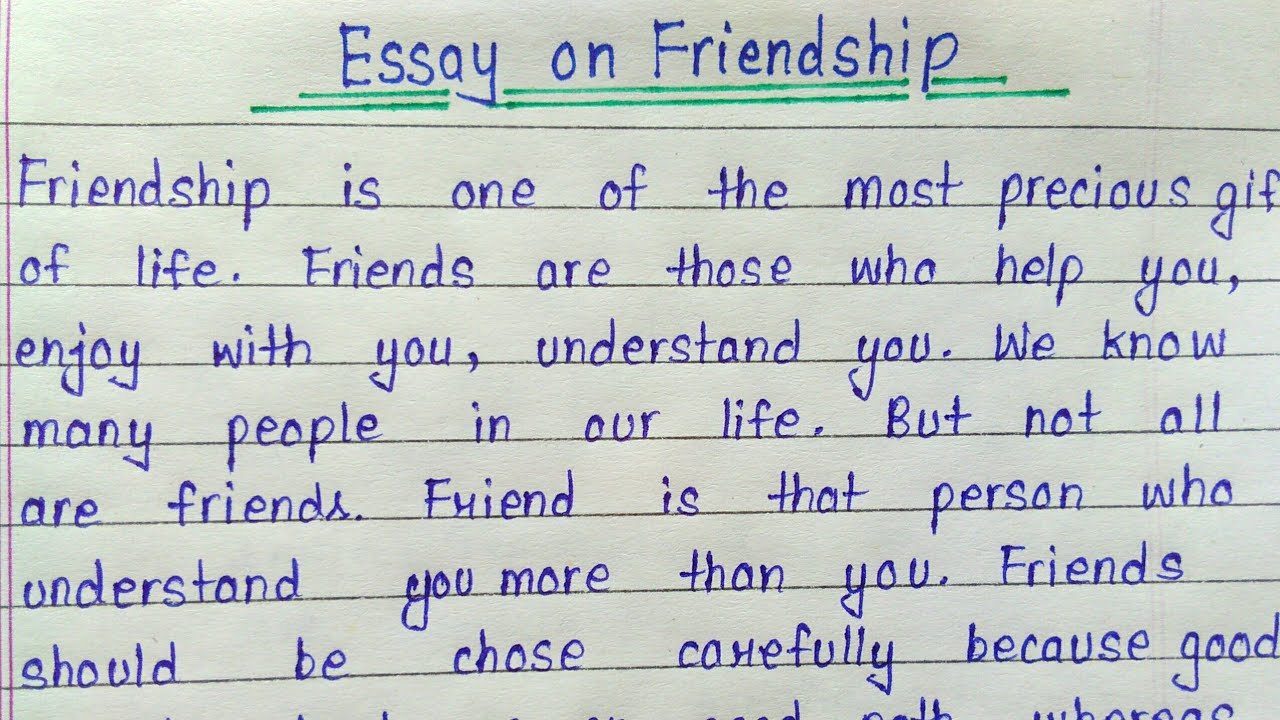 Essay on Friendship
Friendship is one of the most precious gif
of life. Friends are those who help you,
enjoy with you, understand you. We know
many people in our life. But not all
are friends. Friend is that person who
understand you more than you. Friends
should be chose carefully because good
good path whereas